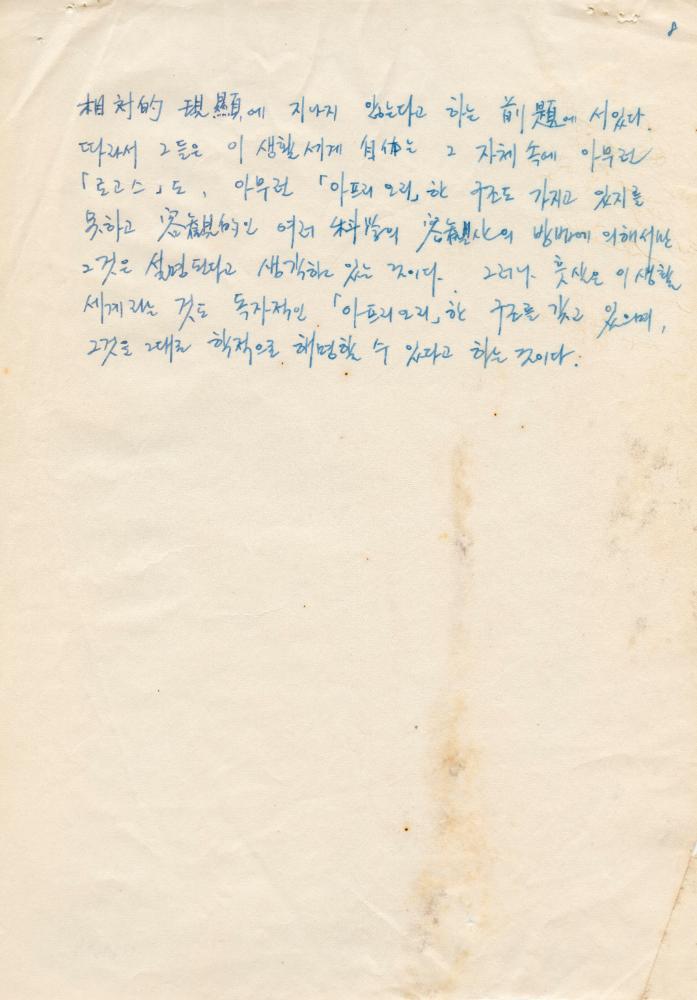 8
相対的 現顯에 지나지 않는다고 하는 前題에 서있다.
따라서 그들은 이 생활세계 自体는 그 자체 속에 아무런
「로고스」도, 아무런 「아프리오리」한 구조도 가지고 있지를
못하고 客觀的인 여러 科學의 客觀的인 방법에 의해서만
그것은 설명된다고 생각하고 있는 것이다. 그러나 훗살은 이 생활
세계라는 것도 독자적인 「아프리오리」한 구조를 갖고 있으며,
그것을 그대로 학적으로 해명할 수 있다고 하는 것이다.